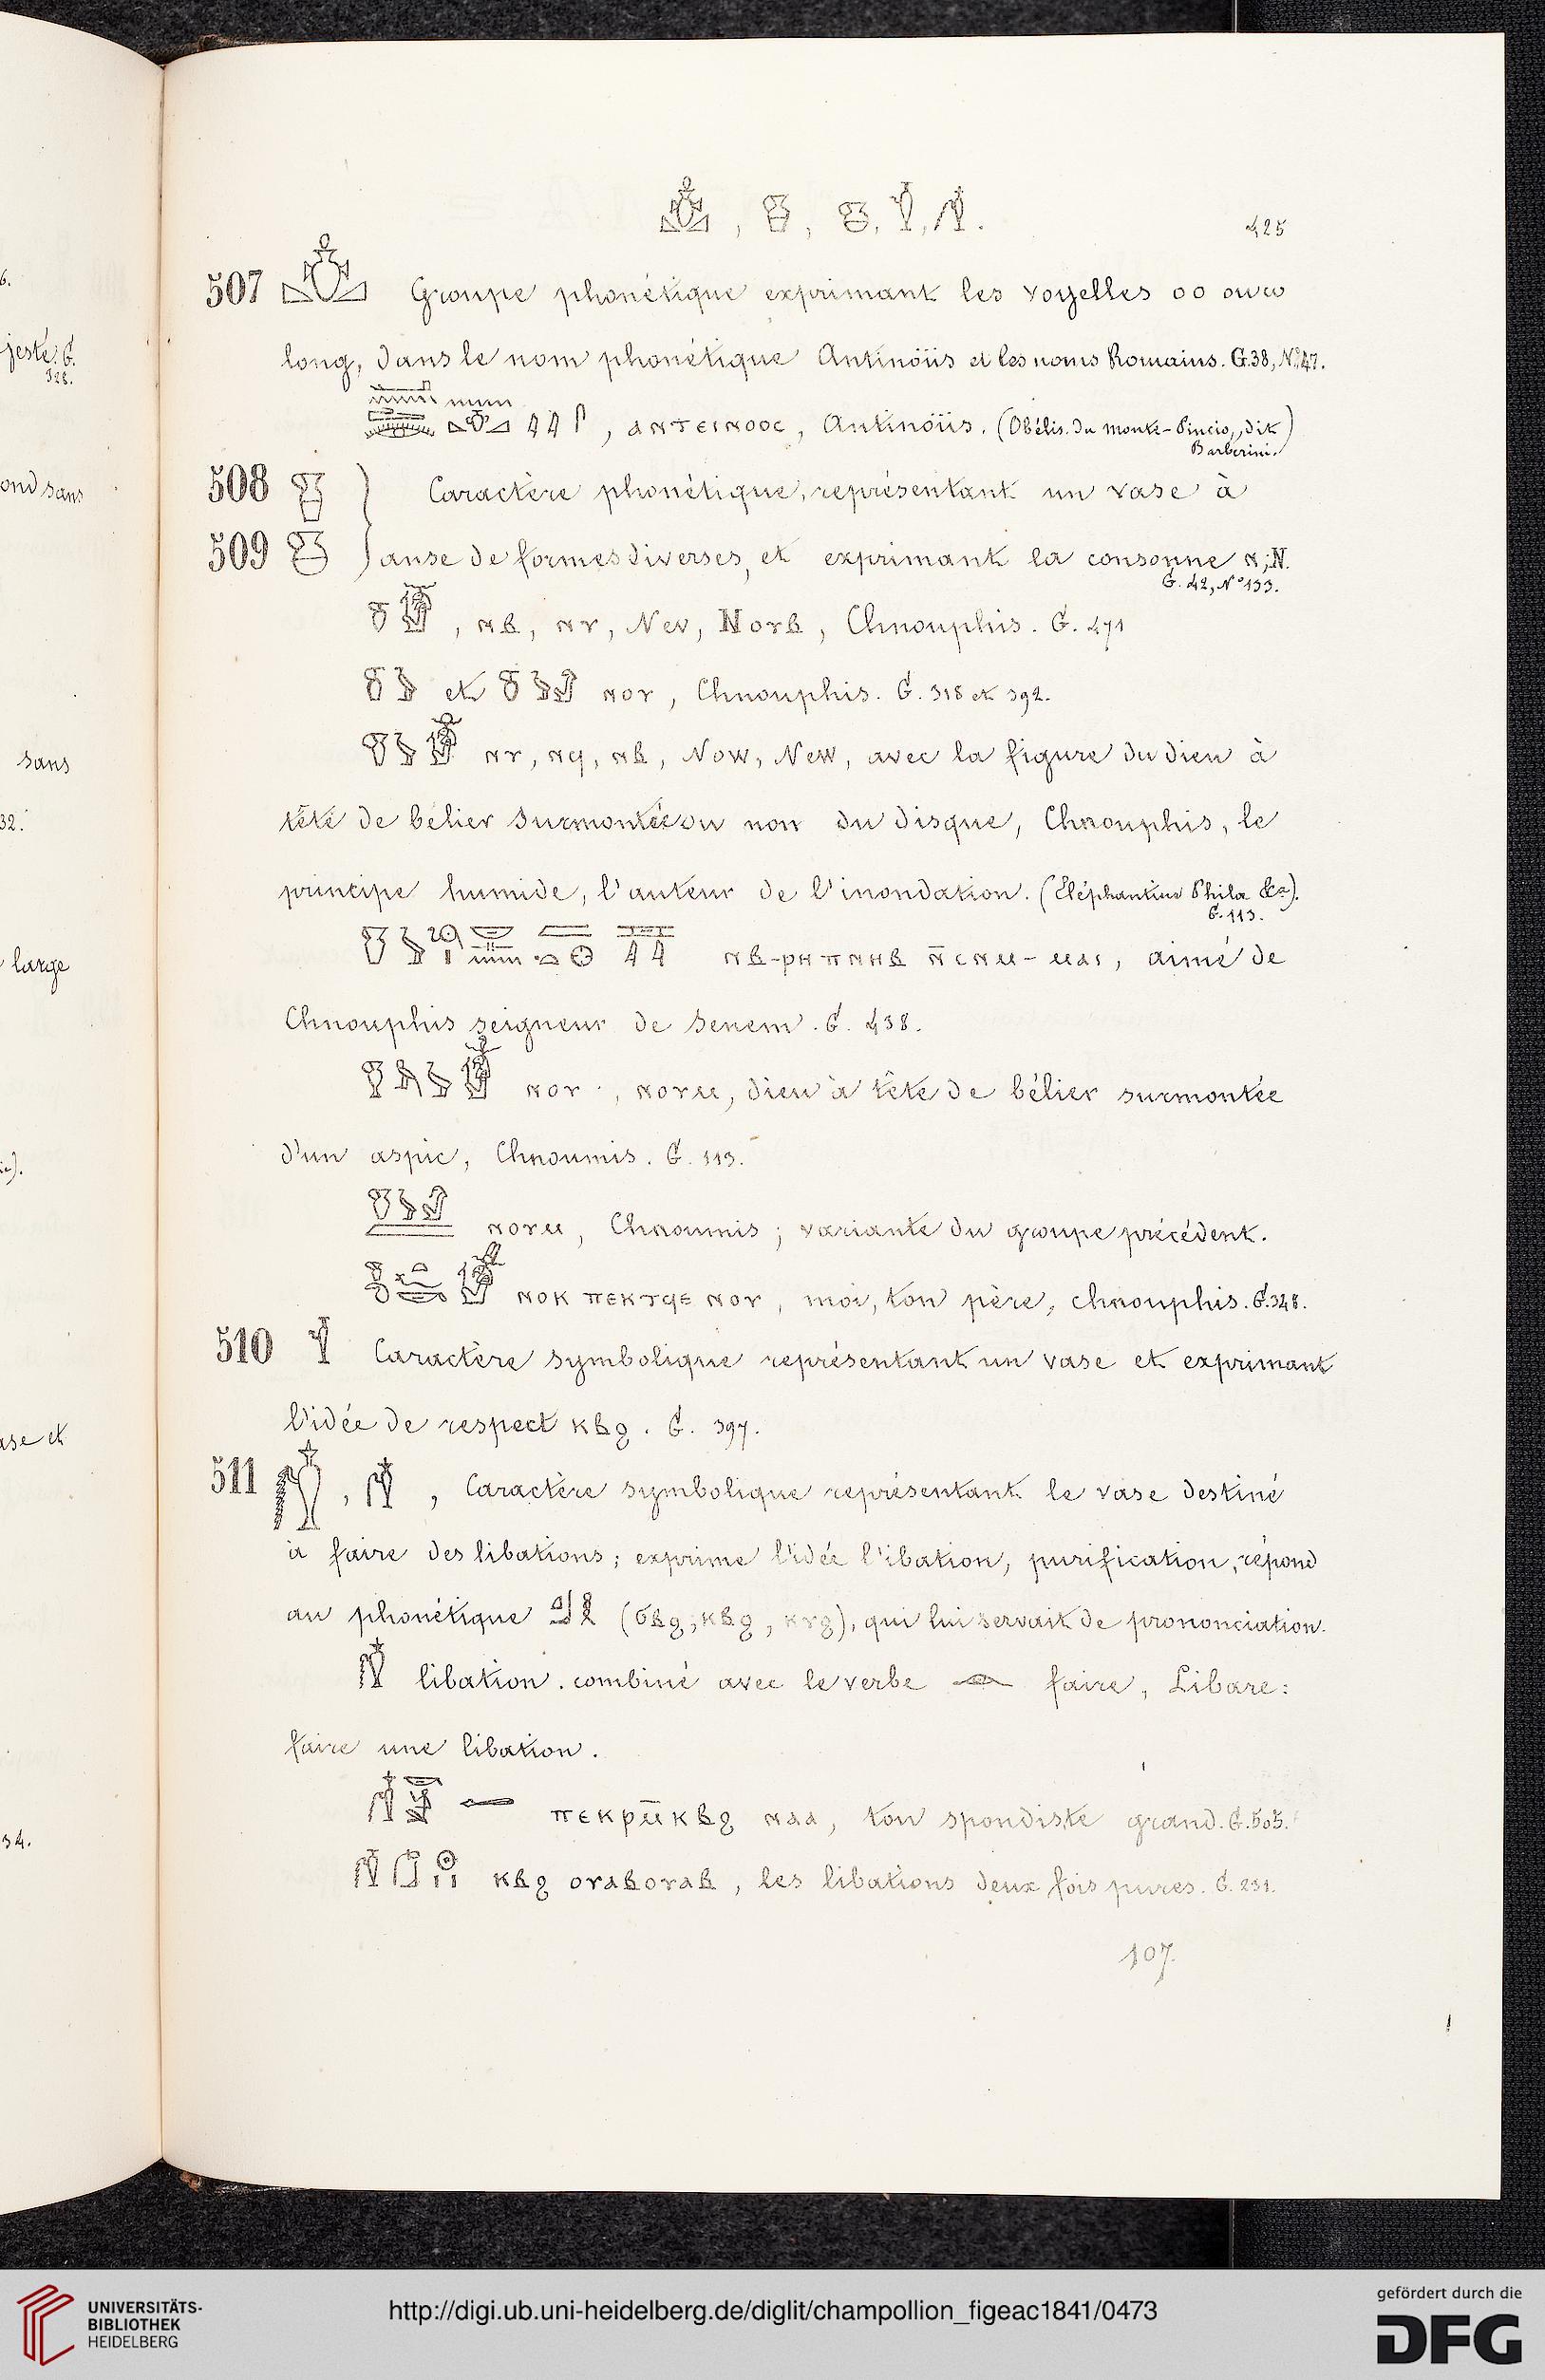 425
507 Groupe phonétique exprimant les voyelles oo ou ω
long, dans le nom phonétique Antinoüs et les noms Romains. G. 38, N° 47.
, ⲁⲛⲧⲉⲓⲛⲟⲟⲥ, Antinoüs. (Obélis. du monte-Pincio, dit
Barberini.)
508 Caractère phonétique, représentant un vase à
509 anse de formes diverses, et exprimant la consonne ⲛ; N.
G. 42, N° 133.
, ⲛⲃ, ⲛⲩ, Nev, Chnouphis. G. 471
et ⲛⲟⲩ, Chnouphis. G. 318 et 392.
ⲛⲩ, ⲛϥ, ⲛⲃ, Now, New, avec la figure du dieu à
tête de bélier surmontée ou non du disque, Chnouphis, le
principe humide, l'auteur de l'inondation. (Eléphantine Philæ &a).
G. 113.
ⲛⲃ-ⲣⲏ ⲡⲛⲏⲃ ⲛ̄ⲥⲛⲙ-ⲙⲁⲓ, aimé de
Chnouphis seigneur de Senem. G. 438.
ⲛⲟⲩ, ⲛⲟⲩⲙ, dieu à tête de bélier surmontée
d'un aspic, Chnoumis. G. 113.
ⲛⲟⲩⲙ, Chnoumis; variante du groupe précédent.
ⲛⲟⲕ ⲡⲉⲕⲧϥⲉ ⲛⲟⲩ, moi, ton père, chnouphis. G. 348.
510 Caractère symbolique représentant un vase et exprimant
l'idée de respect ⲕⲃϩ. G. 397.
511 , , Caractère symbolique représentant le vase destiné
à faire des libations; exprime l'idée libation, purification, répond
au phonétique (ϭⲃϩ, ⲕⲃϩ, ⲕⲩϩ), qui lui servait de prononciation.
libation. combiné avec le verbe faire, Libare:
faire une libation.
ⲡⲉⲕⲣⲙ̄ⲕⲃϩ ⲛⲁⲁ, ton spondiste grand. G. 505.
ⲕⲃϩ ⲟⲩⲁⲃⲟⲩⲁⲃ, les libations deux fois pures. G. 231.
107.
jesté. G.
328.
ond sans
sans
32.
large
ase et
34.
UNIVERSITÄTS-
BIBLIOTHEK
HEIDELBERG
http://digi.ub.uni-heidelberg.de/diglit/champollion_figeac1841/0473
gefördert durch die
DFG